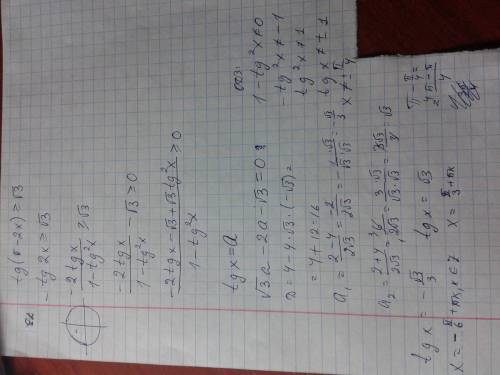 tg(π-2x) ≥ √3
-tg 2x ≥ √3
-2tgx / 1-tg²x ≥ √3
-2tgx / 1-tg²x - √3 ≥ 0
-2tgx - √3 + √3tg²x / 1-tg²x ≥ 0
tgx = a
√3a - 2a - √3 = 0
D = 4 - 4·√3·(-√3) =
= 4 + 12 = 16
a₁ = 2-4 / 2√3 = -2 / 2√3 = - 1·√3 / √3·√3 = - √3 / 3
a₂ = 2+4 / 2√3 = 6 / 2√3 = 3·√3 / √3·√3 = 3√3 / 3 = √3
tgx = - √3 / 3 tgx = √3
x = - π/6 + πn, n∈Z x = π/3 + πn
ОДЗ:
1-tg²x ≠ 0
-tg²x ≠ -1
tg²x ≠ 1
tgx ≠ ±1
x ≠ π/4